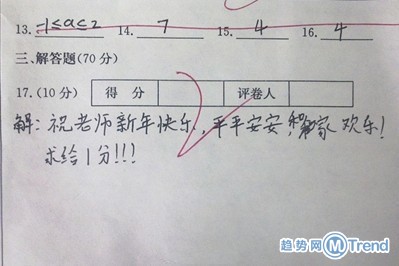 13. -1≤a≤2 14. 7 15. 4 16. 4
三、解答题(70分)
17.(10分) 得 分 评卷人
解：祝老师新年快乐，平平安安，和家欢乐！
求给1分!!!
趋势网 M Trend